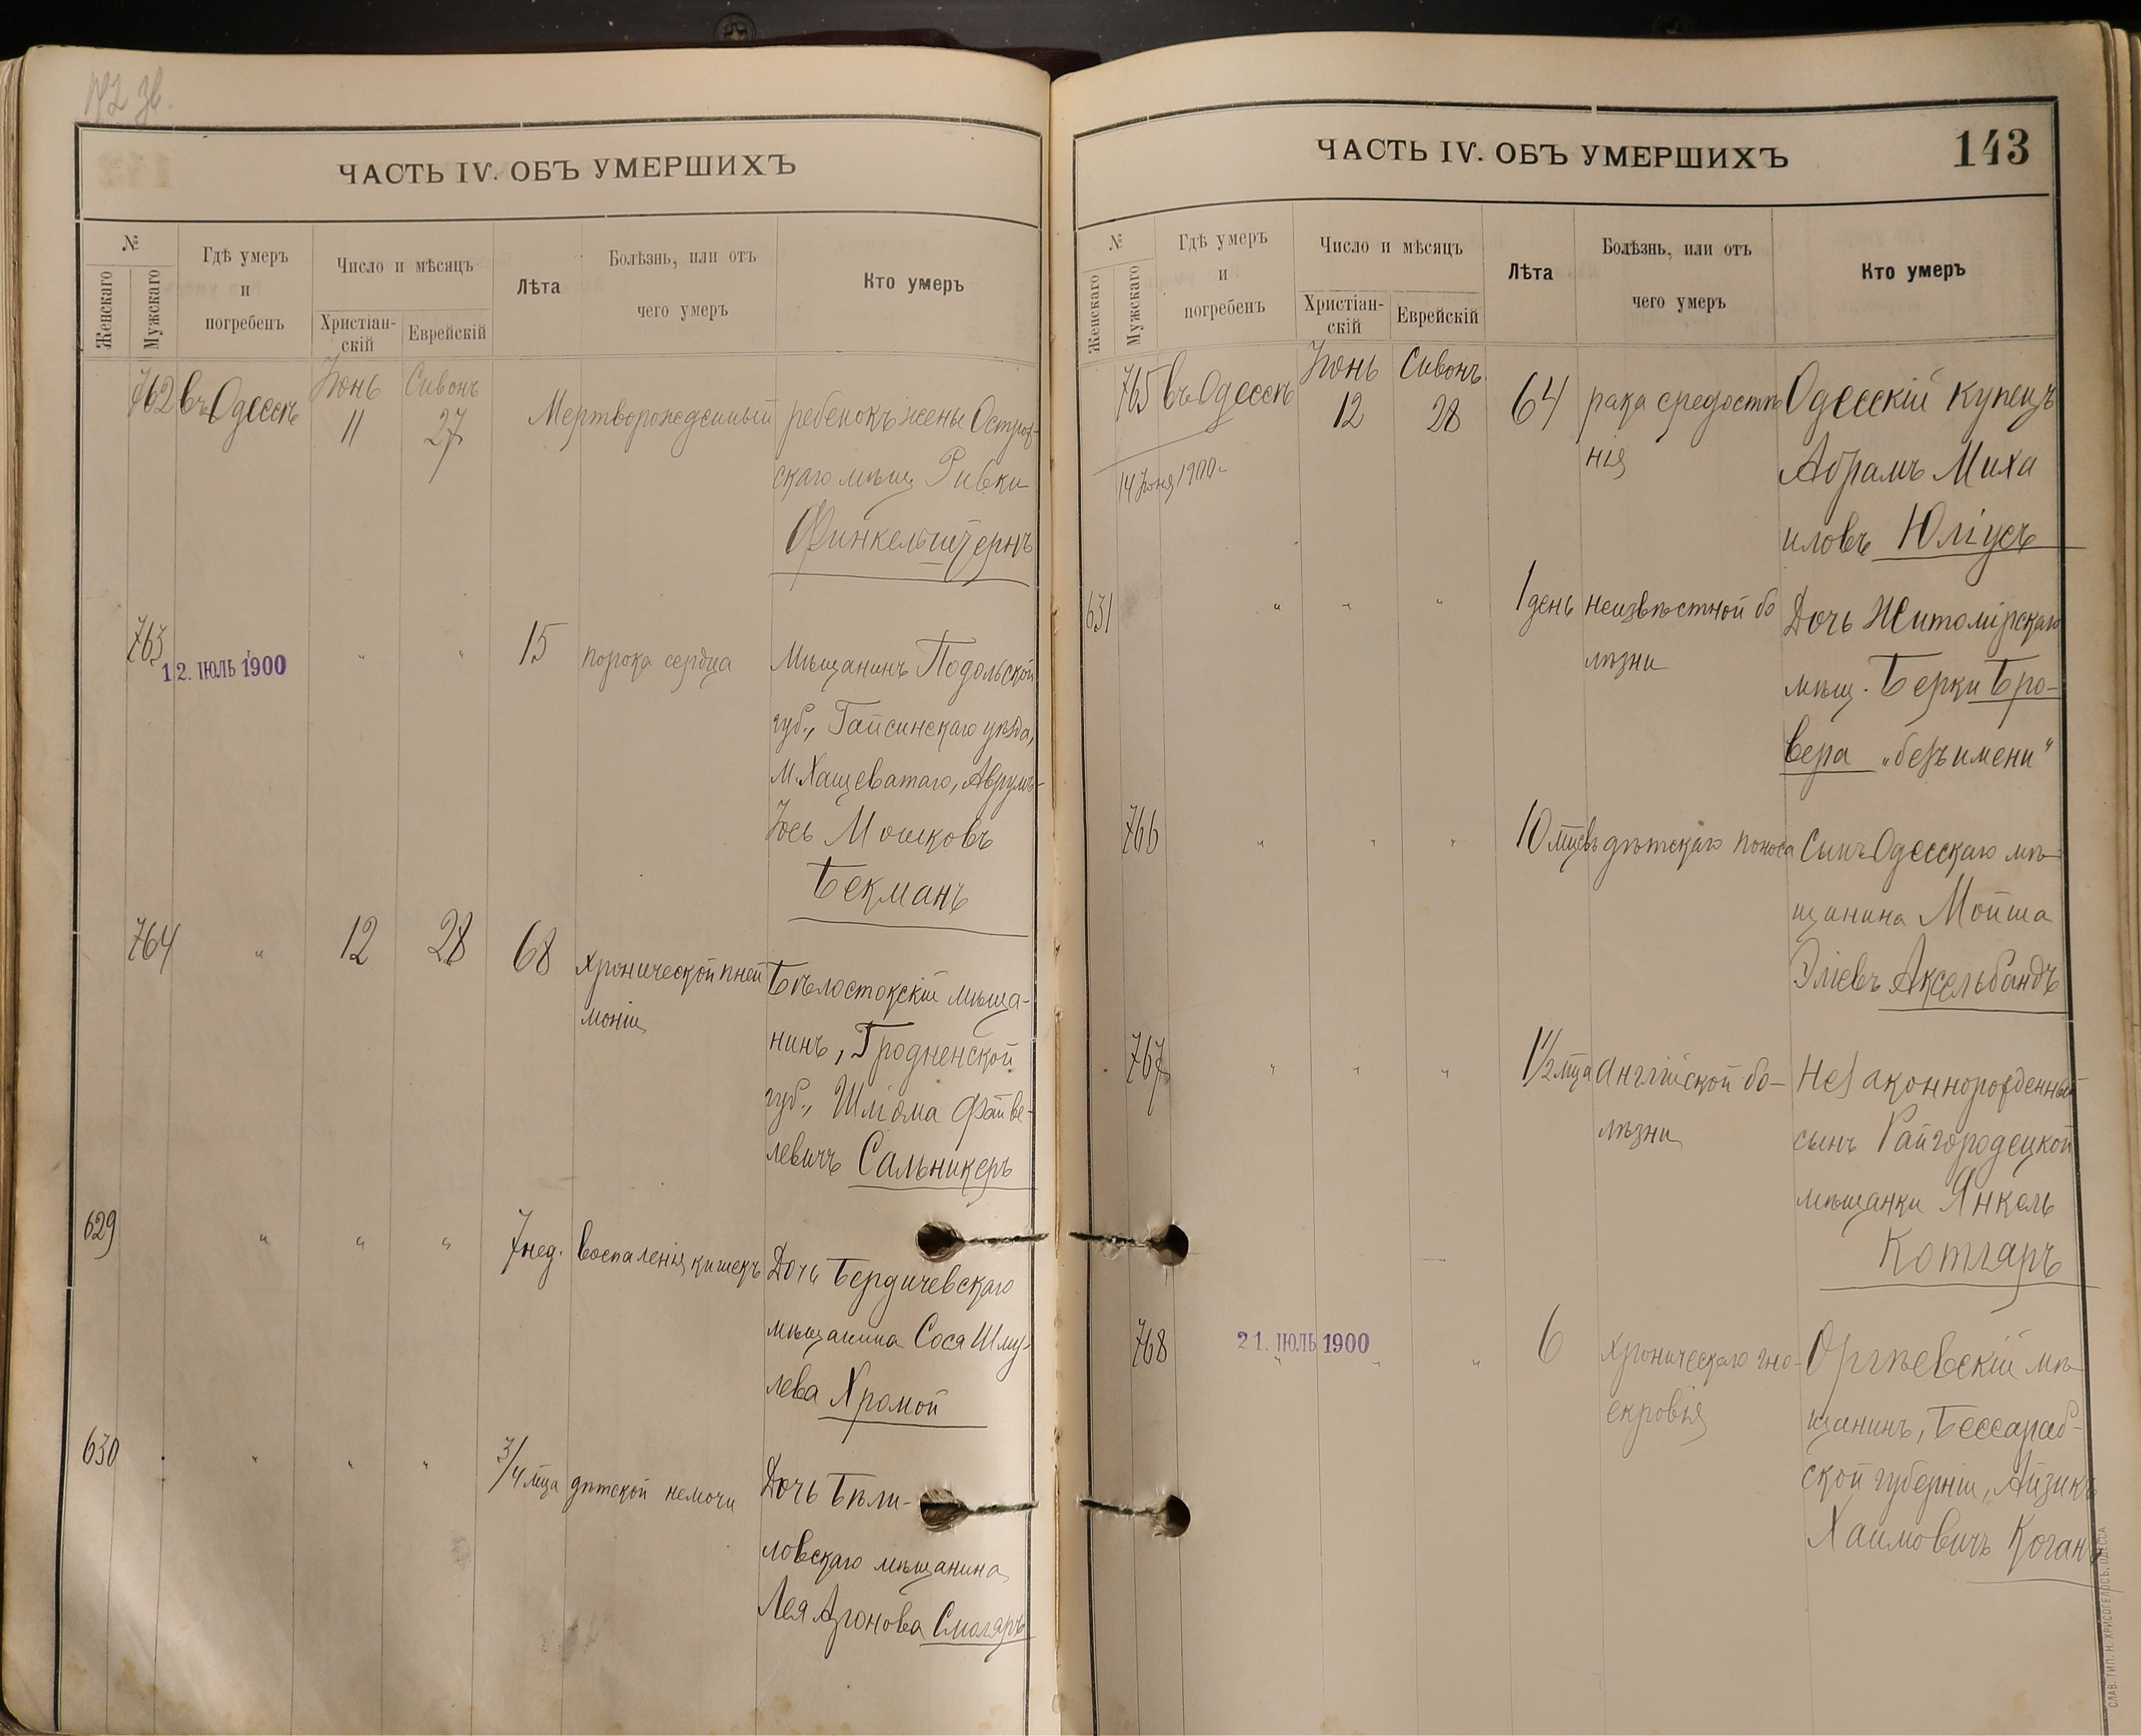 142 зв.
ЧАСТЬ IV. ОБЪ УМЕРШИХЪ
№
Женскаго
Мужскаго
Гдѣ умеръ
и
погребенъ
Число и мѣсяцъ
Христіан-
скій
Еврейскій
Лѣта
Болѣзнь, или отъ
чего умеръ
Кто умеръ
762 въ Одессѣ Іюнь 11 Сивонъ 27 Мертворожденный ребенокъ жены Остров-
скаго мѣщ. Ривки
Финкельштернъ
763 " " " 15 порока сердца Мѣщанинъ Подольской
12. ІЮЛЬ 1900
губ., Гайсинскаго уѣзда,
м. Хащеватаго, Аврумъ-
Іось Мошковъ
Бекманъ
764 " 12 28 68 хронической пней Бѣлостокскій мѣща-
моніи
нинъ, Гродненской
губ., Шліома Файве-
левичъ Сальникеръ
629 " " " 7 нед. воспаленія кишекъ Дочь Бердичевскаго
мѣщанина Сося Шму-
лева Хромой
630 " " " 3/4 мца дѣтской немочи Дочь Бѣли-
ловскаго мѣщанина
Лея Аронова Смоляръ
ЧАСТЬ IV. ОБЪ УМЕРШИХЪ
143
№
Женскаго
Мужскаго
Гдѣ умеръ
и
погребенъ
Число и мѣсяцъ
Христіан-
скій
Еврейскій
Лѣта
Болѣзнь, или отъ
чего умеръ
Кто умеръ
765 въ Одессѣ Іюнь 12 Сивонъ 28 64 рака средостѣ Одесскій купецъ
нія
14 Іюня 1900 г.
Абрамъ Миха
иловъ Юліусъ
631 " " " 1 день неизвѣстной бо Дочь Житомірскаго
лѣзни
мѣщ. Берки Бро-
вера „безъ имени“
766 " " " 10 мцевъ дѣтскаго поноса Сынъ Одесскаго мѣ-
щанина Мойша
Эліевъ Аксельбандъ
767 " " " 1½ мца англійской бо- Незаконнорожденный
лѣзни
сынъ Райгородецкой
мѣщанки Янкель
Котляръ
768 " " " 6 хроническаго гно- Оргѣевскій мѣ-
21. ІЮЛЬ 1900
екровія
щанинъ, Бессараб-
ской губерніи, Айзикъ
Хаимовичъ Коганъ
СЛАВ. ТИП. Н. ХРИСОГЕЛОСЪ, ОДЕССА